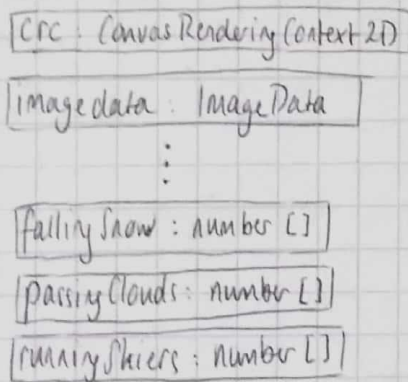 crc : CanvasRenderingContext2D
imagedata : ImageData
⋮
fallingSnow : number []
passingClouds : number []
runningSkiers : number []